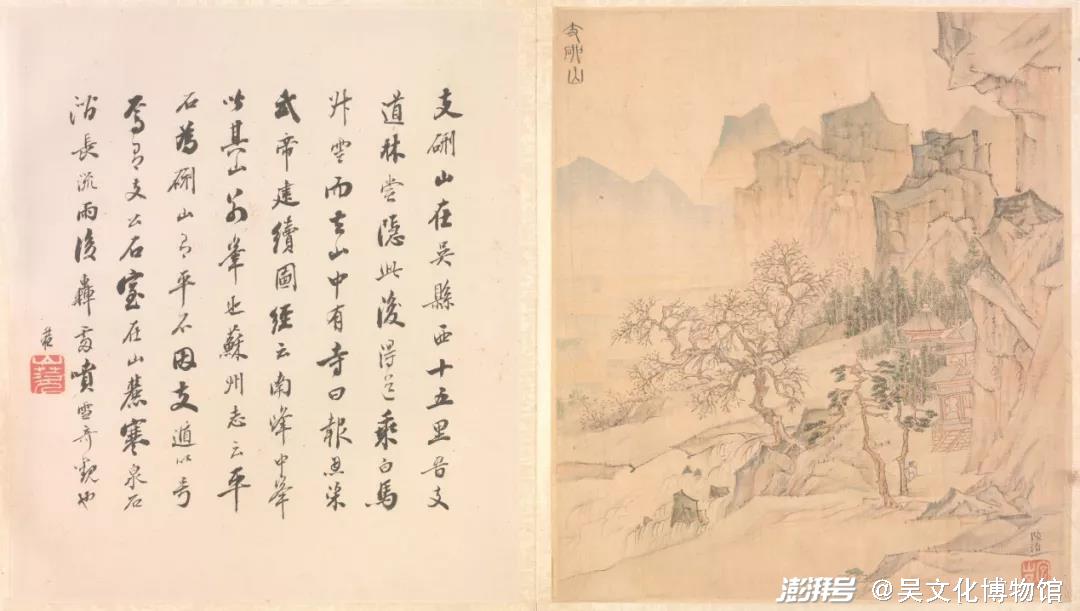 支硎山在吳縣西十五里晉支
道林嘗隱此後得道乘白馬
升雲而去山中有寺曰報恩梁
武帝建續圖經云南峰中峯
皆其山別峯也蘇州志云平
石為硎山有平石因支遁以号
焉有支公石室在山麓寒泉石
澗長流雨後轟雷噴雪奇觀也
支硎山
陸治
澎湃号 @吴文化博物馆